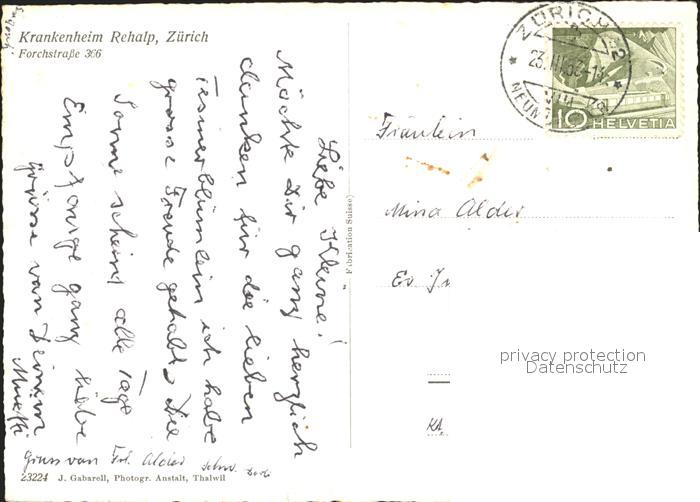 Krankenheim Rehalp, Zürich
Forchstraße 366
Liebe Kleine!
Möchte Dir ganz herzlich
danken für die lieben
Tessinerblümlein ich habe
grosse Freude gehabt. Die
Sonne scheint alle Tage
Empfange ganz liebe
Grüsse von Deinem
Gruss von Frl. Alder
23224 J. Gabarell, Photogr. Anstalt, Thalwil
Fabrication Suisse
ZÜRICH
NEUM
10 HELVETIA
Fräulein
Mina Alder
privacy protection
Datenschutz